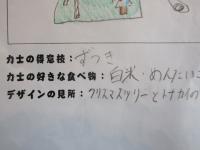 力士の得意技：ずつき
力士の好きな食べ物：白米・めんたいこ
デザインの見所：クリスマスツリーとトナカイの